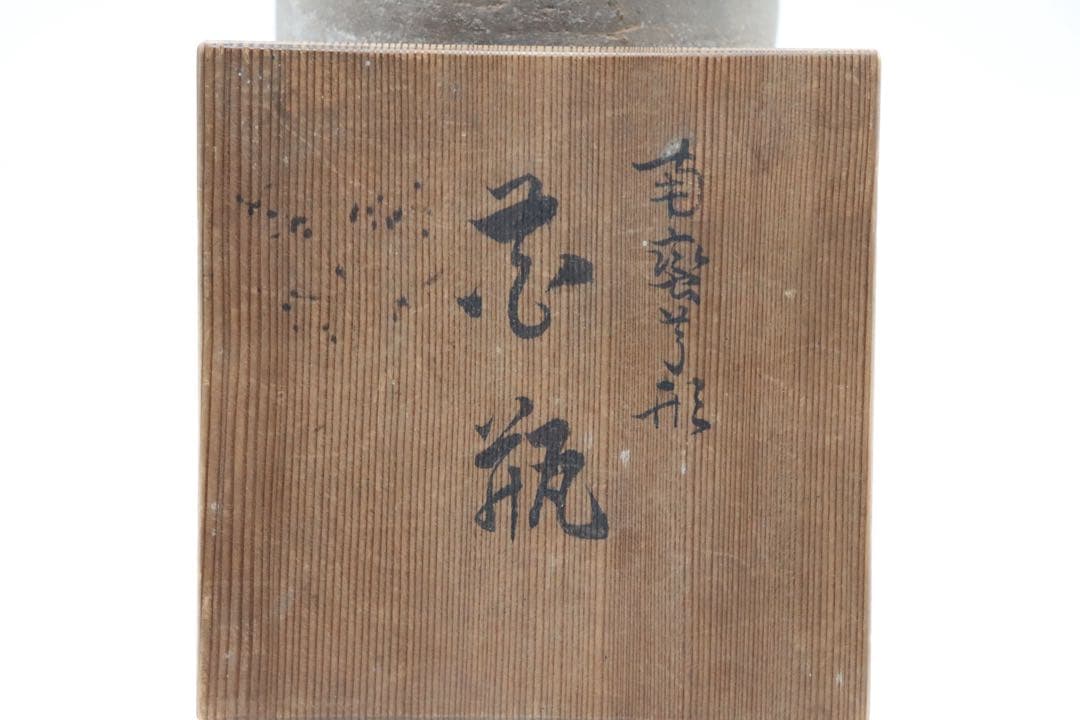 南蛮芋形
花瓶